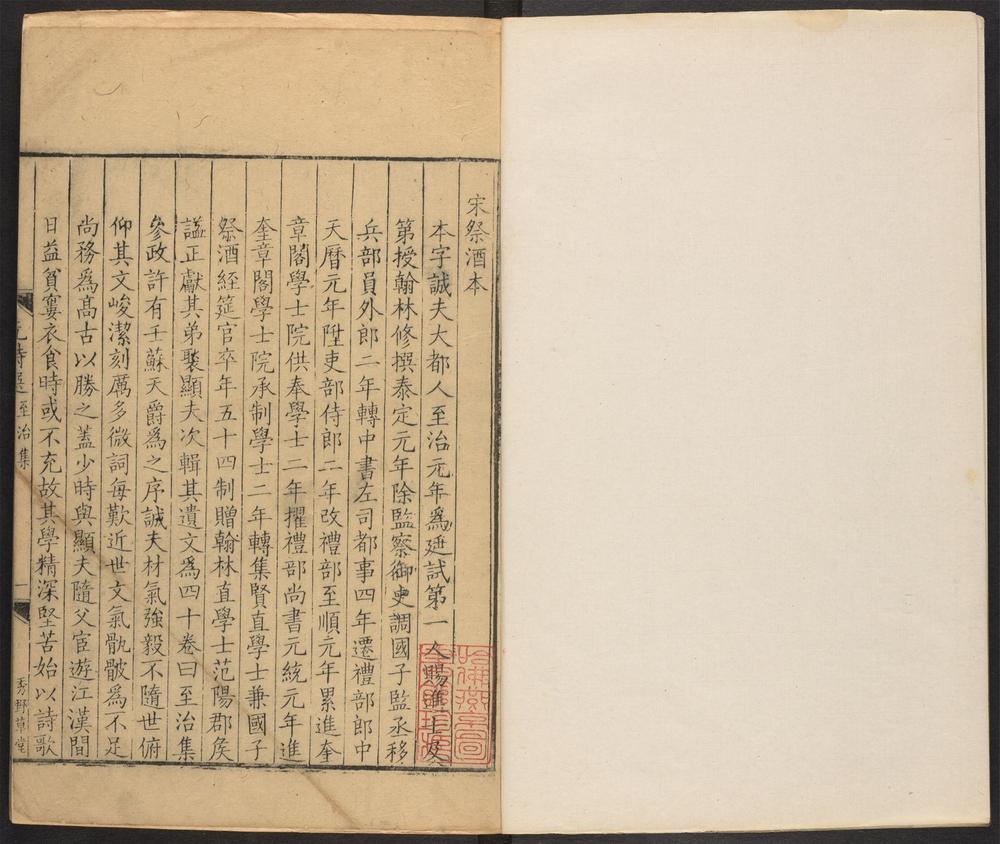 宋祭酒本
本字誠夫大都人至治元年爲廷試第一人賜進士及
第授翰林修撰泰定元年除監察御史調國子監丞移
兵部員外郎二年轉中書左司都事四年遷禮部郎中
天曆元年陞吏部侍郎二年改禮部至順元年累進奎
章閣學士院供奉學士二年擢禮部尚書元統元年進
奎章閣學士院承制學士二年轉集賢直學士兼國子
祭酒經筵官卒年五十四制贈翰林直學士范陽郡侯
諡正獻其弟褧顯夫次輯其遺文爲四十卷曰至治集
參政許有壬蘇天爵爲之序誠夫材氣強毅不隨世俯
仰其文峻潔刻厲多微詞每歎近世文氣骫骳爲不足
尚務爲髙古以勝之葢少時與顯夫隨父宦遊江漢間
日益貧窶衣食時或不充故其學精深堅苦始以詩歌
元詩選 至治集
一
秀野草堂
哈佛燕京圖